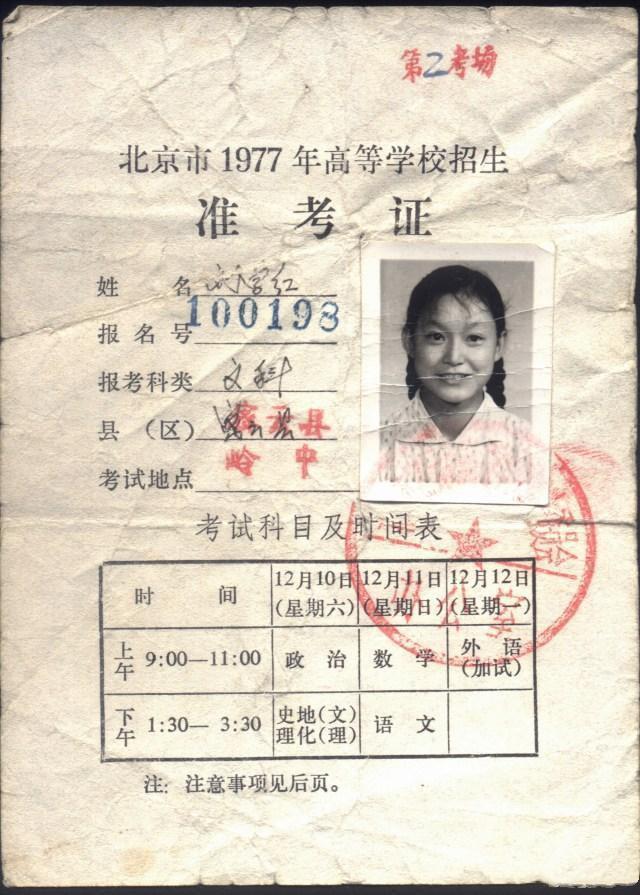 第2考场
北京市1977年高等学校招生
准考证
姓 名
报名号 100198
报考科类 文科
县（区） 密云县
考试地点
考试科目及时间表
时 间 12月10日（星期六） 12月11日（星期日） 12月12日（星期一）
上午 9:00—11:00 政治 数学 外语（加试）
下午 1:30—3:30 史地（文）理化（理） 语文
注：注意事项见后页。